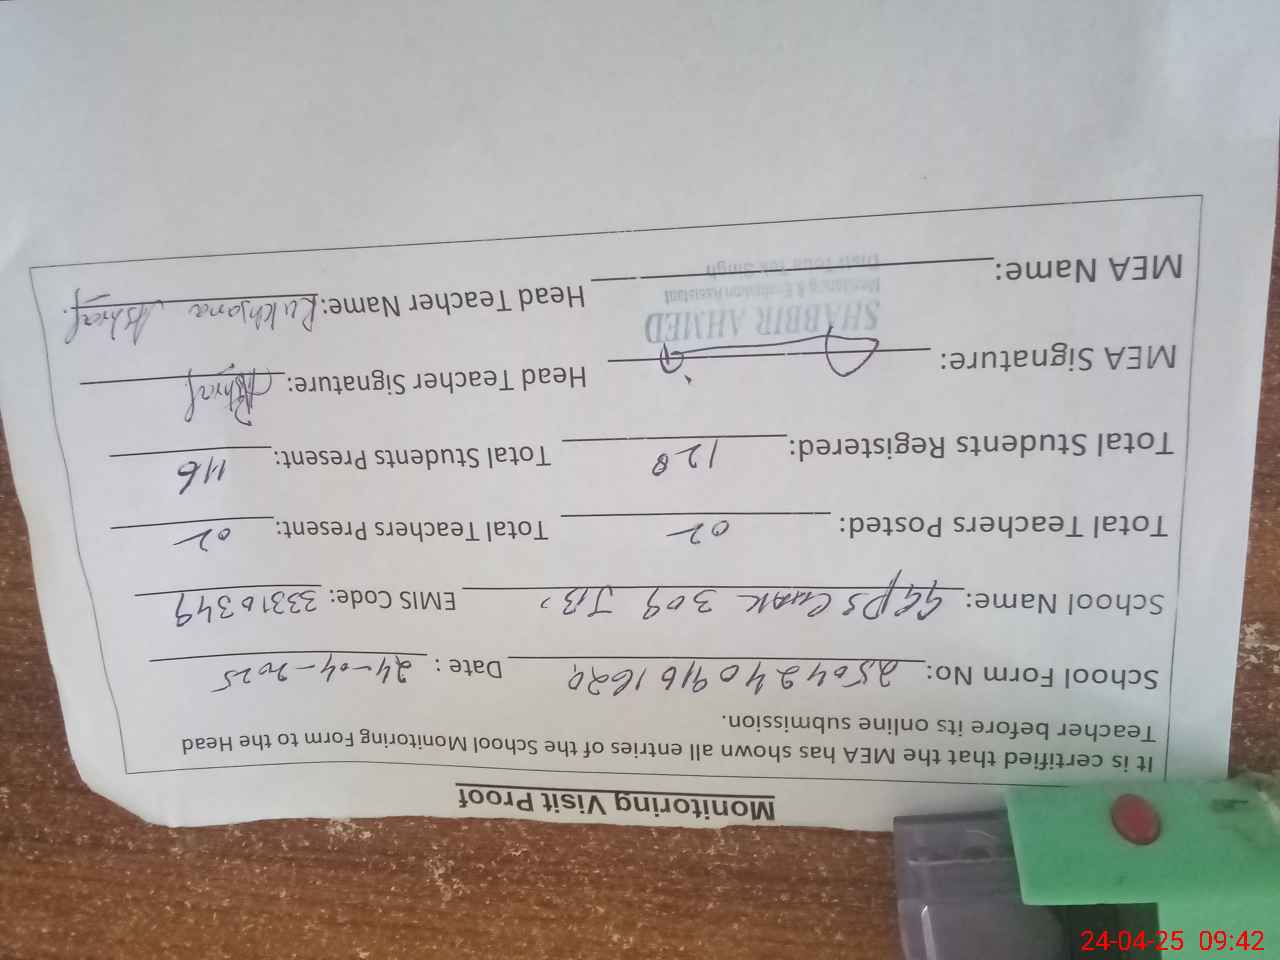 Monitoring Visit Proof
It is certified that the MEA has shown all entries of the School Monitoring Form to the Head
Teacher before its online submission.
School Form No: 2504240961620 Date : 24-04-2025
School Name: GGPS Chak 309 JB EMIS Code: 33310349
Total Teachers Posted: 02 Total Teachers Present: 02
Total Students Registered: 128 Total Students Present: 116
MEA Signature: Head Teacher Signature: Ashraf
SHABBIR AHMED
Monitoring & Evaluation Assistant
Distt: Toba Tek Singh
MEA Name: Head Teacher Name: Rukhsana Ashraf.
24-04-25 09:42